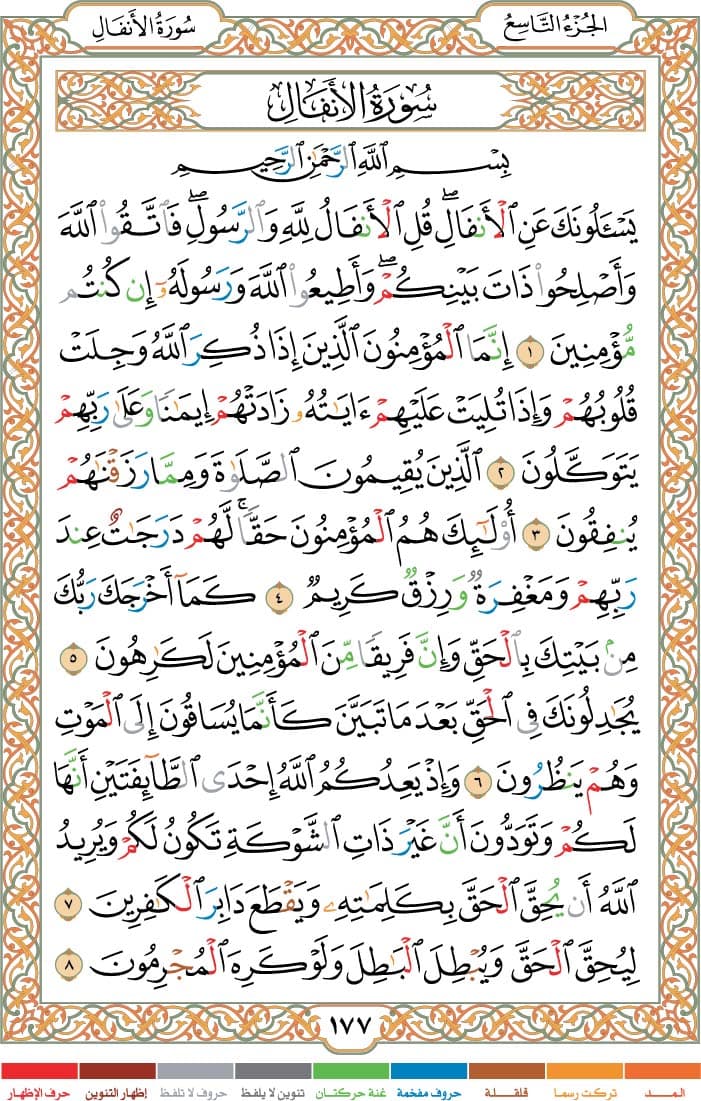 الجُزْءُ التَّاسِعُ
سُورَةُ الأَنفَالِ
سُورَةُ الأَنفَالِ
بِسْمِ ٱللَّهِ ٱلرَّحْمَٰنِ ٱلرَّحِيمِ
يَسْـَٔلُونَكَ عَنِ ٱلْأَنفَالِۖ قُلِ ٱلْأَنفَالُ لِلَّهِ وَٱلرَّسُولِۖ فَٱتَّقُوا۟ ٱللَّهَ
وَأَصْلِحُوا۟ ذَاتَ بَيْنِكُمْۖ وَأَطِيعُوا۟ ٱللَّهَ وَرَسُولَهُۥٓ إِن كُنتُم
مُّؤْمِنِينَ ١ إِنَّمَا ٱلْمُؤْمِنُونَ ٱلَّذِينَ إِذَا ذُكِرَ ٱللَّهُ وَجِلَتْ
قُلُوبُهُمْ وَإِذَا تُلِيَتْ عَلَيْهِمْ ءَايَٰتُهُۥ زَادَتْهُمْ إِيمَٰنًا وَعَلَىٰ رَبِّهِمْ
يَتَوَكَّلُونَ ٢ ٱلَّذِينَ يُقِيمُونَ ٱلصَّلَوٰةَ وَمِمَّا رَزَقْنَٰهُمْ
يُنفِقُونَ ٣ أُو۟لَٰٓئِكَ هُمُ ٱلْمُؤْمِنُونَ حَقًّاۚ لَّهُمْ دَرَجَٰتٌ عِندَ
رَبِّهِمْ وَمَغْفِرَةٌ وَرِزْقٌ كَرِيمٌ ٤ كَمَآ أَخْرَجَكَ رَبُّكَ
مِنۢ بَيْتِكَ بِٱلْحَقِّ وَإِنَّ فَرِيقًا مِّنَ ٱلْمُؤْمِنِينَ لَكَٰرِهُونَ ٥
يُجَٰدِلُونَكَ فِى ٱلْحَقِّ بَعْدَ مَا تَبَيَّنَ كَأَنَّمَا يُسَاقُونَ إِلَى ٱلْمَوْتِ
وَهُمْ يَنظُرُونَ ٦ وَإِذْ يَعِدُكُمُ ٱللَّهُ إِحْدَى ٱلطَّآئِفَتَيْنِ أَنَّهَا
لَكُمْ وَتَوَدُّونَ أَنَّ غَيْرَ ذَاتِ ٱلشَّوْكَةِ تَكُونُ لَكُمْ وَيُرِيدُ
ٱللَّهُ أَن يُحِقَّ ٱلْحَقَّ بِكَلِمَٰتِهِۦ وَيَقْطَعَ دَابِرَ ٱلْكَٰفِرِينَ ٧
لِيُحِقَّ ٱلْحَقَّ وَيُبْطِلَ ٱلْبَٰطِلَ وَلَوْ كَرِهَ ٱلْمُجْرِمُونَ ٨
١٧٧
المــد تركت رسما قلقلة حروف مفخمة غنة حركتان تنوين لا يلفظ حروف لا تلفظ إظهار التنوين حرف الإظهار